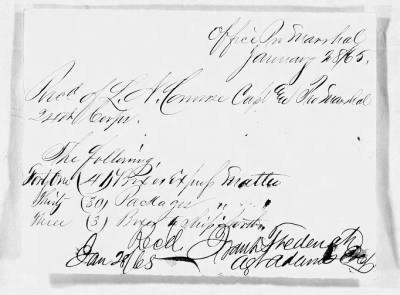 Office Pro Marshal
January 28/65.
Recd of L. N. Converse Capt & Pro Marshal
24th Corps.
The following,
Forty One (41) Boxes Express Matter
Thirty (30) Packages " " "
Three (3) Boxes
Recd
Jan 28/65 Frank
Agt Adams Ex